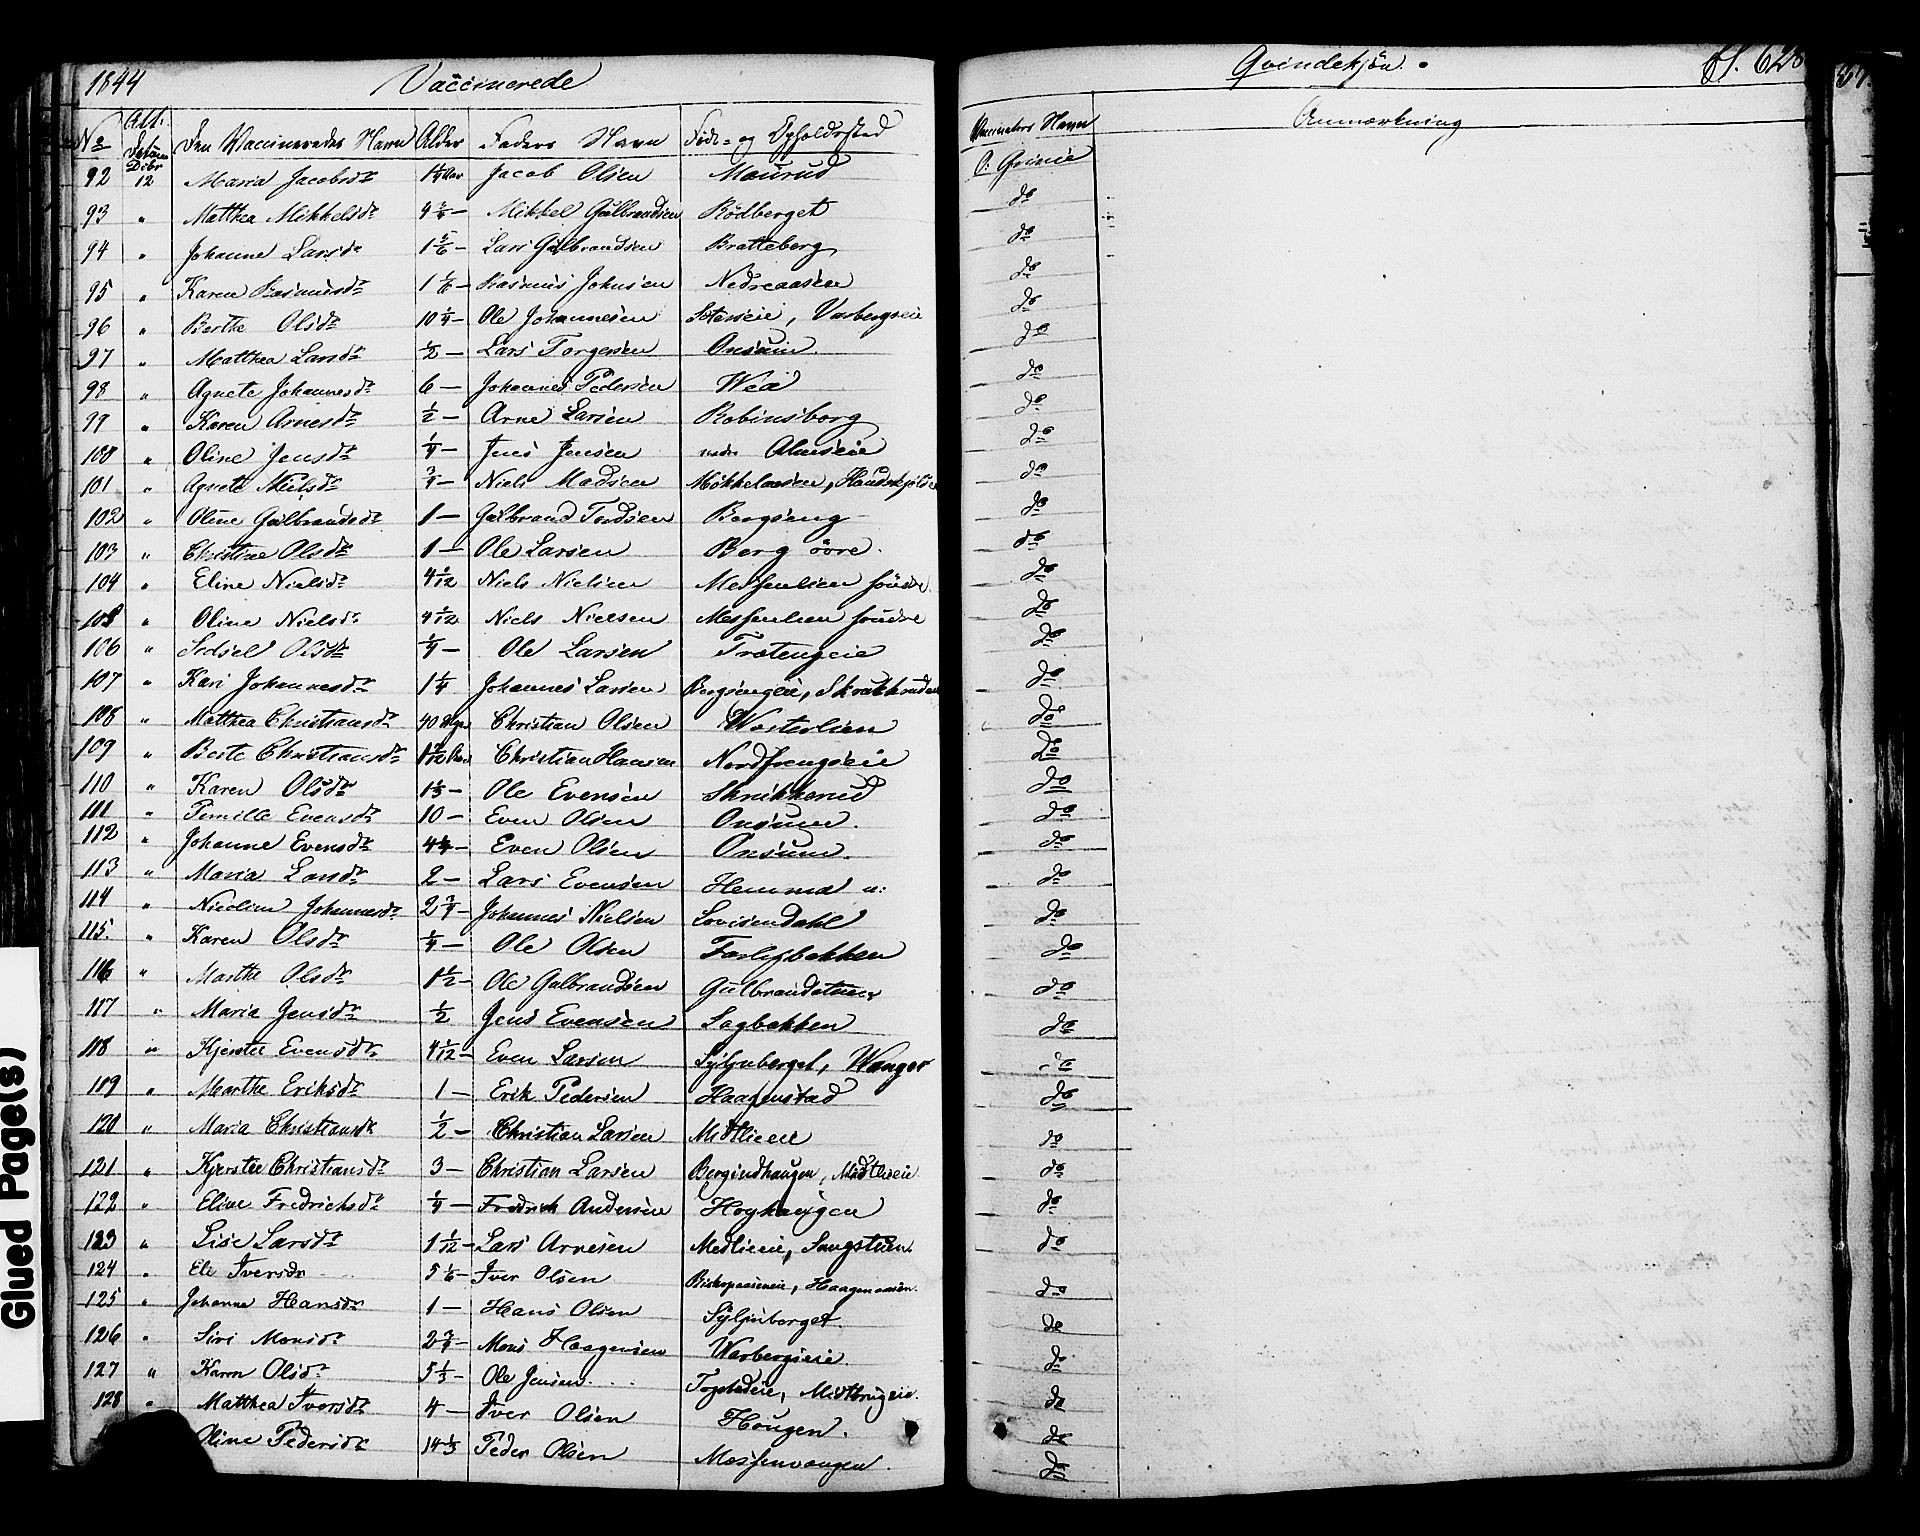 1844 Vaccinerede Qvindekjön. S. 628
No Den Vaccineredes Navn Alder Faders Navn Føde- og Opholdssted Vaccinators Navn Anmærkning
92 Debr 12 Maria Jacobsdr 1¼ Aar Jacob Olsen Maurud O: Qvinie
93 " Matthea Mikkelsdr Mikkel Gulbrandsen Rödberget do
94 " Johanne Larsdr 1 5/6 – Lars Gulbrandsen Bratteberg do
95 " Karen Rasmusdr 1 1/6 – Rasmus Johnsen Nedreaasen do
96 " Berthe Olsdr 10 ¼ – Ole Johannesen Seterseie, Varbergseie do
97 " Matthea Larsdr ½ – Lars Torgersen Onsum. do
98 " Agnete Johannesdr 6 – Johannes Pedersen Wea do
99 " Karen Arnesdr ½ – Arne Larsen Robinsborg do
100 " Oline Jensdr ¼ – Jens Jensen nedr Almseie do
101 " Agnete Nielsdr ¾ – Niels Madsen do
102 " Oline Gulbrandsdr 1 – Gulbrand Tordsen Bergseng do
103 " Christine Olsdr 1 – Ole Larsen Berg övre. do
104 " Eline Nielsdr 4/12 Niels Nielsen Messenlien söndre do
105 " Oline Nielsdr 4/12 Niels Nielsen Messenlien söndre do
106 " Sedsel Olsdr ¼ – Ole Larsen Tratengeie do
107 " Kari Johannesdr 1 ¼ Johannes Larsen Bergsengeie, Skrukkrud do
108 " Matthea Christiansdr 40 Uger Christian Olsen Westerlien do
109 " Berte Christiansdr Christian Hansen Nordhengseie do
110 " Karen Olsdr 1⅓ – Ole Evensen Skrikkerud do
111 " Pernille Evensdr 10 – Even Olsen Onsum. do
112 " Johanne Evensdr Even Olsen Onsum. do
113 " Maria Larsdr 2 – Lars Evensen Hemma n: do
114 " Nicoline Johannesdr 2 ¾ – Johannes Nielsen Lovisendahl do
115. " Karen Olsdr ¼ – Ole Olsen do
116 " Marthe Olsdr 1½ – Ole Gulbrandsen Gulbrandstuen do
117 " Maria Jensdr ½ Jens Evensen Sagbakken do
118 " Kjerstie Evensdr Even Larsen Syljuberget, Wanger do
119 " Marthe Eriksdr 1 – Erik Pedersen Haagenstad do
120 " Maria Christiansdr ½ – Christian Larsen Midtlieeie do
121 " Kjerstie Christiansdr 3 – Christian Larsen Bergindhaugen, Midtlieeie do
122 " Eline Fredrichsdr ¼ – Fredrich Andersen Hoghaugen do
123 " Lise Larsdr 1 1/12 – Lars Arnesen Medlieeie, Sangstuen. do
124 " Ele Iversdr 5 1/6 – Iver Olsen Biskopaaseneie, Haagenaasen. do
125 " Johanne Hansdr 1 – Hans Olsen Syljuberget. do
126 " Siri Monsdr 2 ¾ – Mons Haagensen Warbergseie. do
127 " Karen Olsdr 5 ⅓ – Ole Jensen Midtbrugeie. do
128 " Matthea Iversdr 4 – Iver Olsen Hougen. do
Oline Pedersdr 14 ⅓ Peder Olsen Messenvangen. do
Glued Page(s)